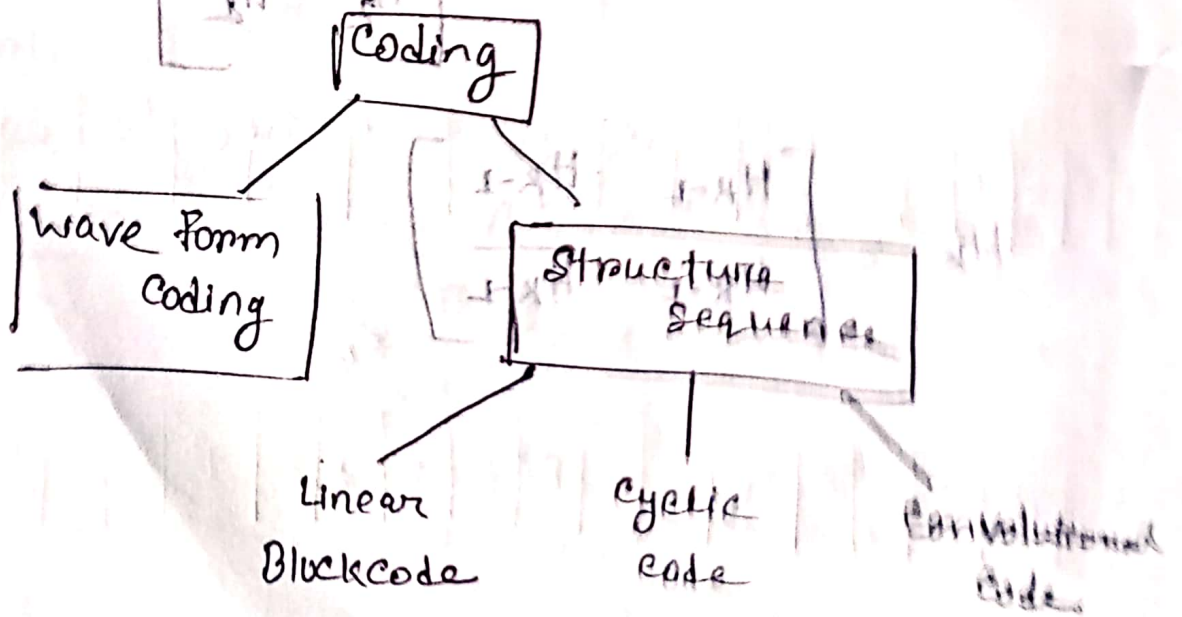 Coding
Wave Form
Coding
Structure
Sequences
Linear
Blockcode
Cyclic
Code
Convolutional
Code.